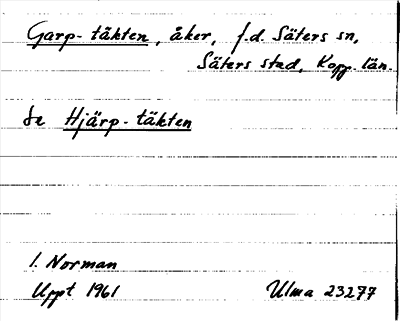 Garp-täkten, åker, f.d. Säters sn,
Säters stad, Kopp. län.
Se Hjärp-täkten
I. Norman
Uppt 1961 Ulma 23277